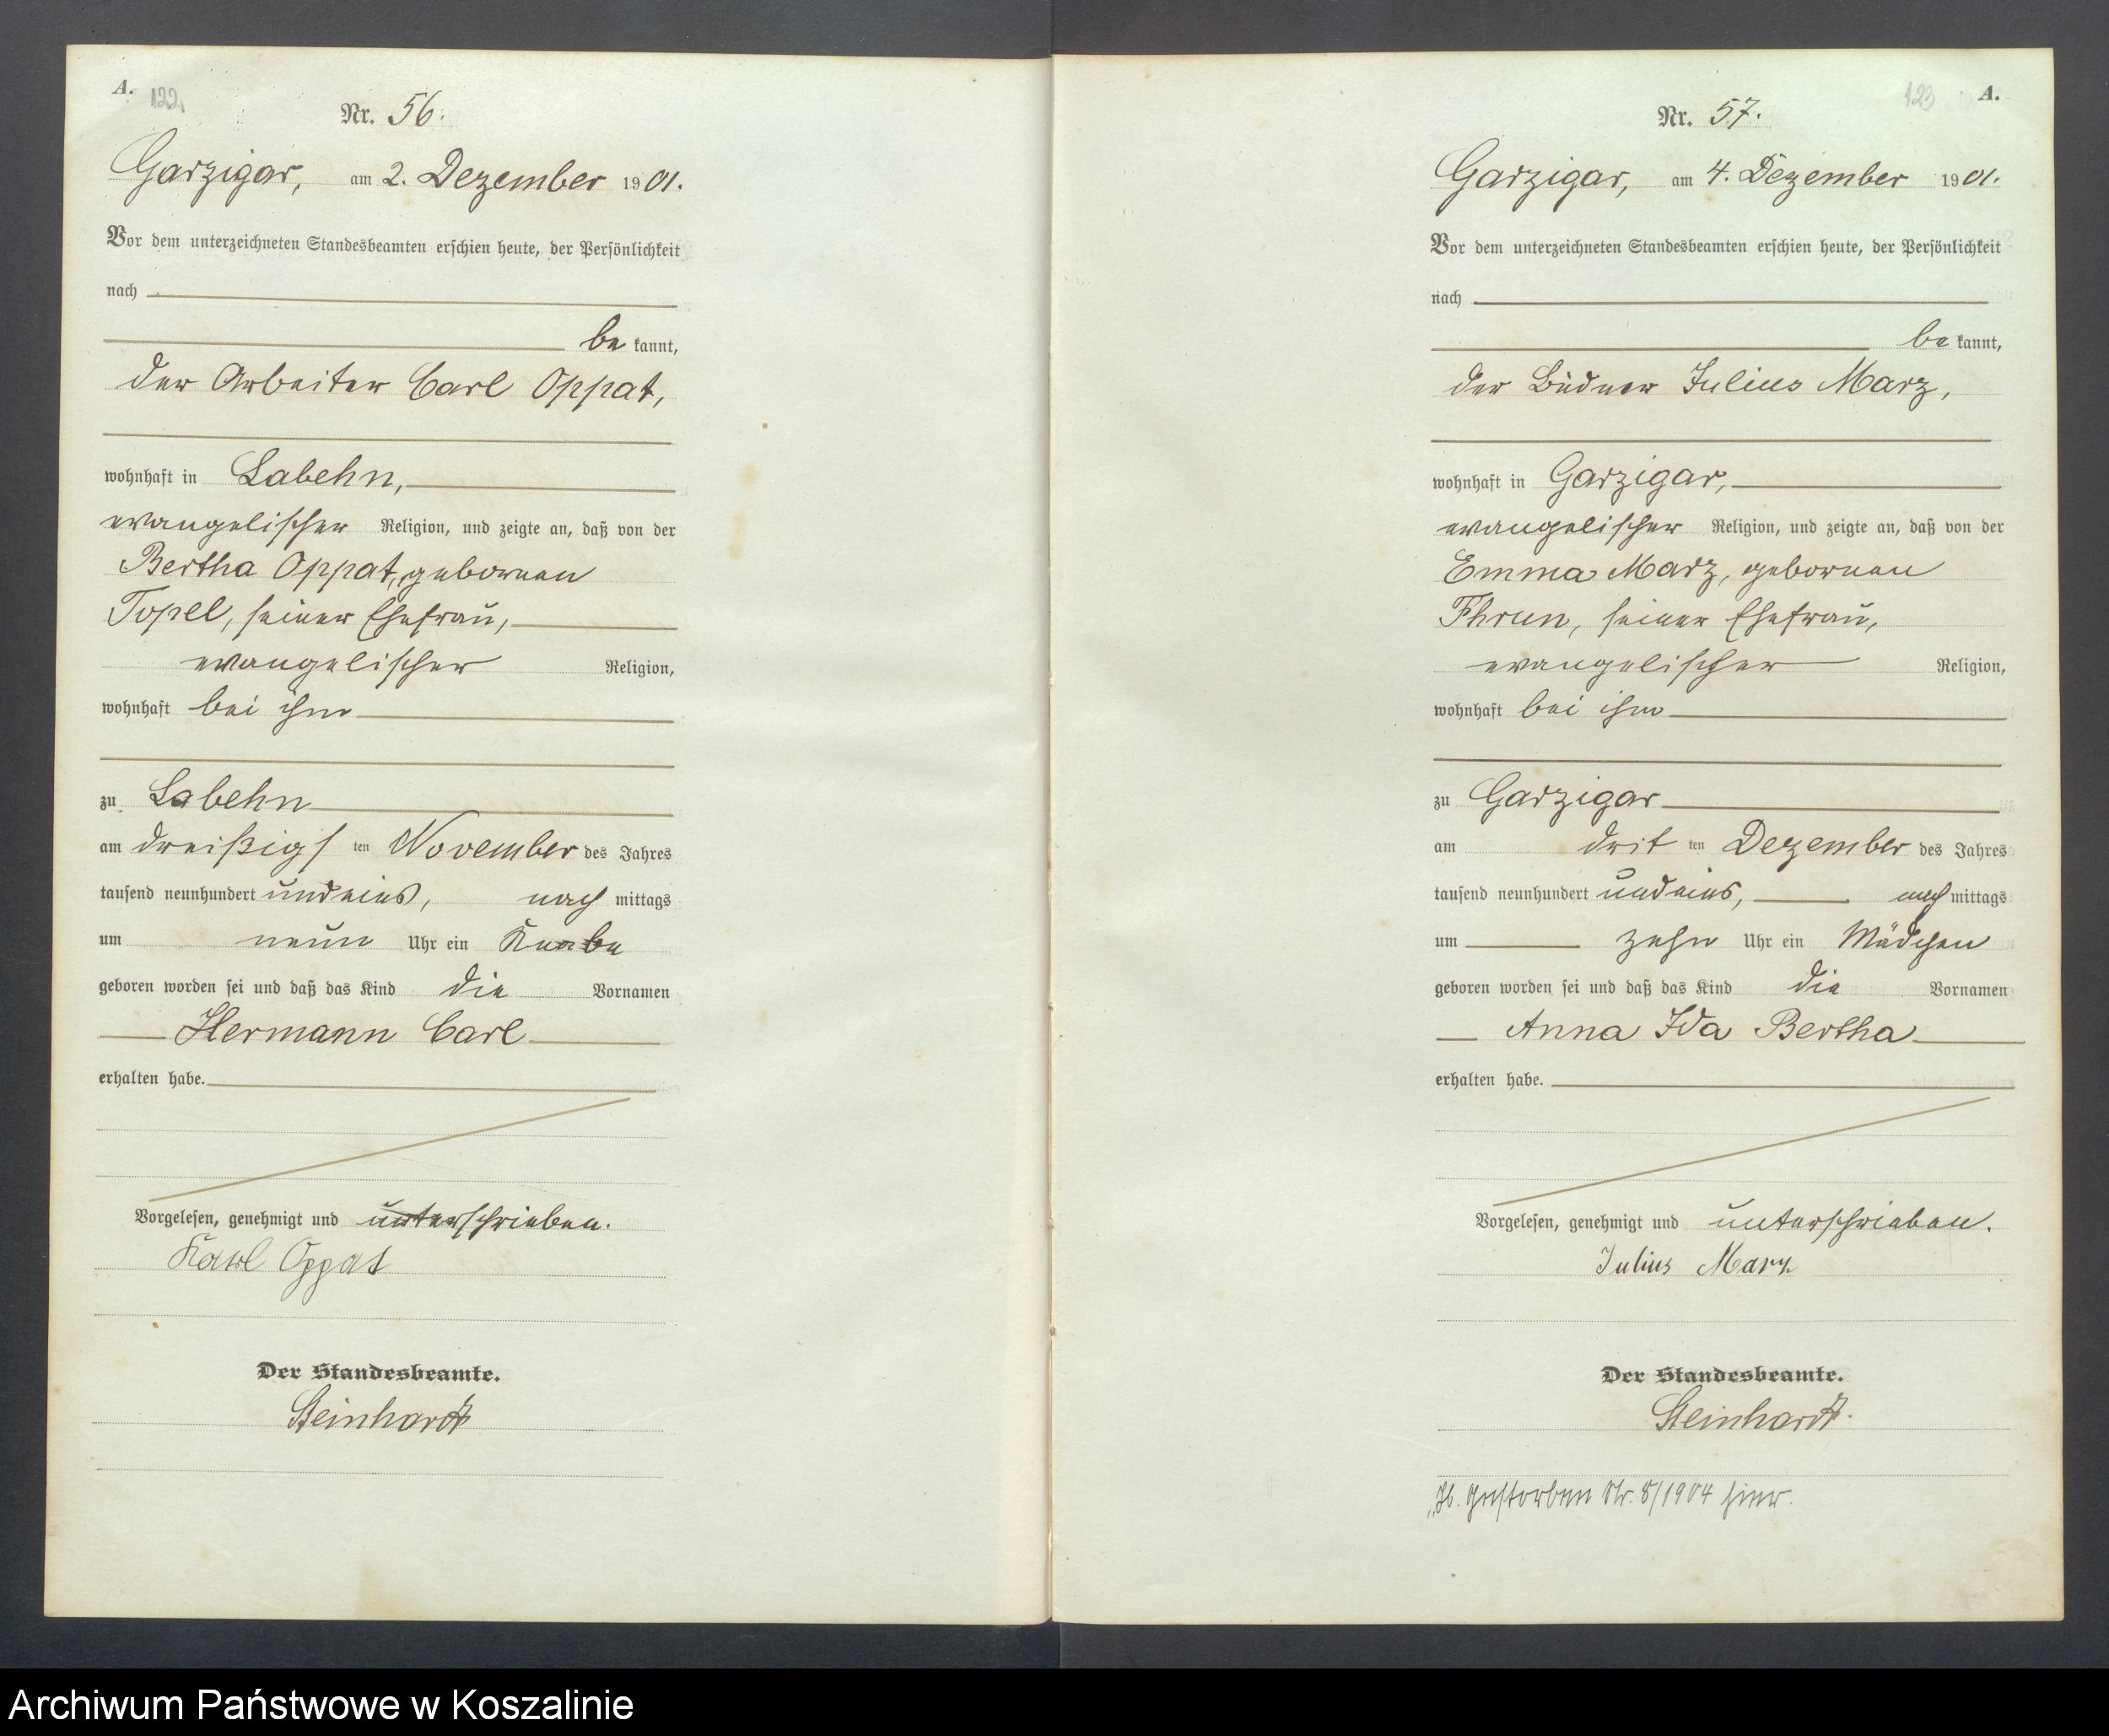 A.
122
Nr. 56.
Garzigar, am 2. Dezember 1901.
Vor dem unterzeichneten Standesbeamten erschien heute, der Persönlichkeit
nach
be kannt,
der Arbeiter Carl Oppat,
wohnhaft in Labehn,
evangelischer Religion, und zeigte an, daß von der
Bertha Oppat, gebornen
Topel, seiner Ehefrau,
evangelischer Religion,
wohnhaft bei ihm
zu Labehn
am dreißigs ten November des Jahres
tausend neunhundert undeins, nach mittags
um neun Uhr ein Knabe
geboren worden sei und daß das Kind die Vornamen
Hermann Carl
erhalten habe.
Vorgelesen, genehmigt und unterschrieben.
Karl Oppat
Der Standesbeamte.
Steinhardt
123
A.
Nr. 57.
Garzigar, am 4. Dezember 1901.
Vor dem unterzeichneten Standesbeamten erschien heute, der Persönlichkeit
nach
be kannt,
der Büdner Julius Marz,
wohnhaft in Garzigar,
evangelischer Religion, und zeigte an, daß von der
Emma Marz, gebornen
Thrun, seiner Ehefrau,
evangelischer Religion,
wohnhaft bei ihm
zu Garzigar
am drit ten Dezember des Jahres
tausend neunhundert undeins, nach mittags
um zehn Uhr ein Mädchen
geboren worden sei und daß das Kind die Vornamen
Anna Ida Bertha
erhalten habe.
Vorgelesen, genehmigt und unterschrieben.
Julius Marz
Der Standesbeamte.
Steinhardt.
gestorben Nr. 8/1904 hier.
Archiwum Państwowe w Koszalinie